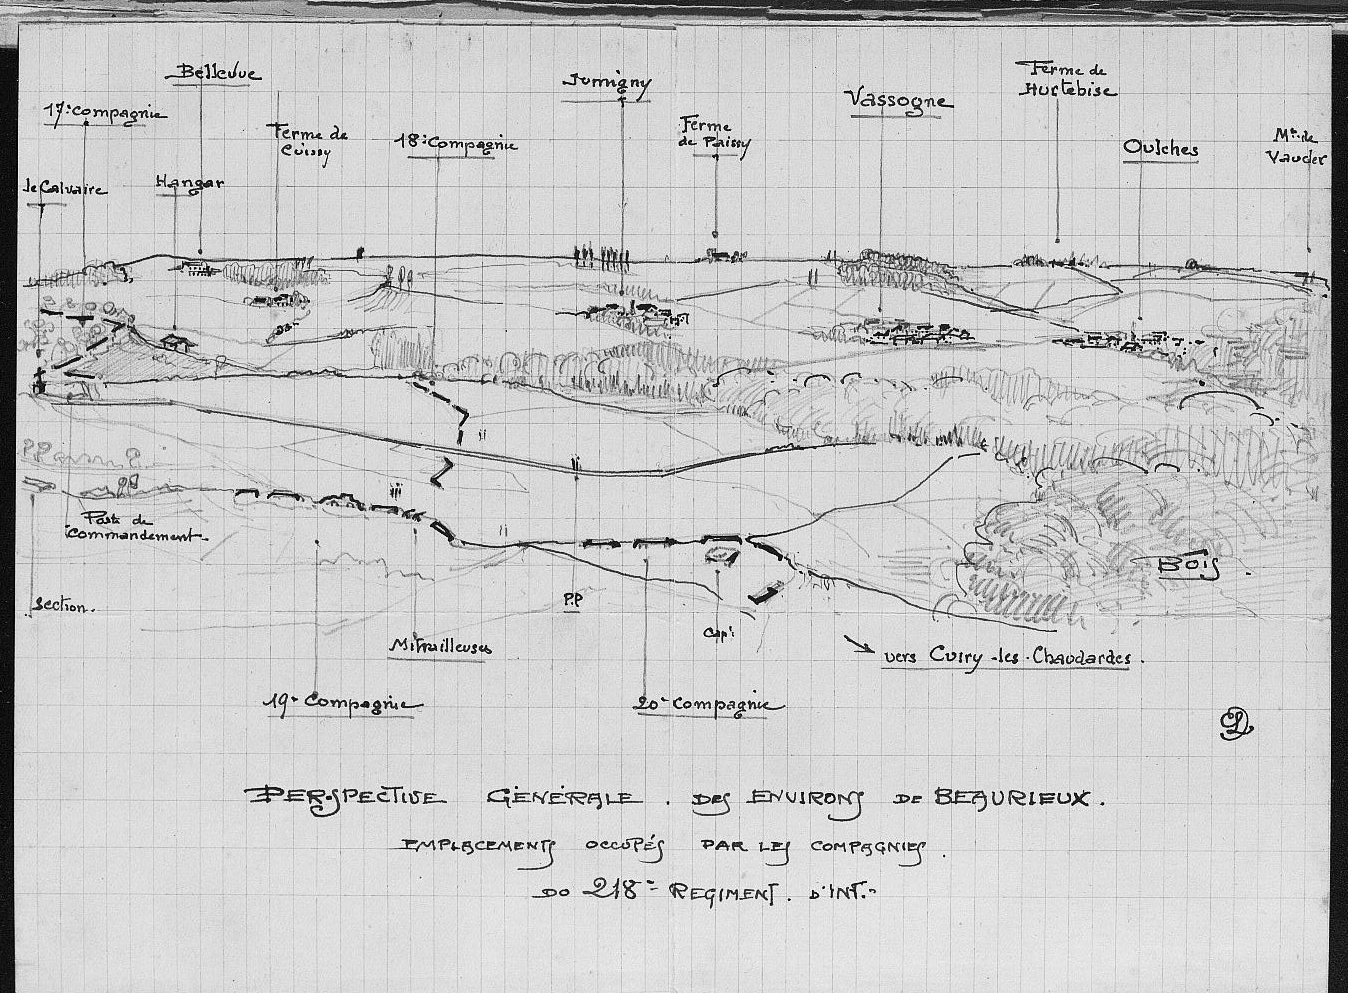 Bellevue
Jumigny
Ferme de
Hurtebise
17e Compagnie
Vassogne
Ferme de
Cuissy
18e Compagnie
Ferme
de Paissy
Oulches
Min de
Vaucler
le Calvaire
Hangar
Poste de
Commandement.
Bois
Section.
P.P
Mitrailleuses
Cape
vers Cuiry-les-Chaudardes.
19e Compagnie
20e Compagnie
PERSPECTIVE GÉNÉRALE. DES ENVIRONS DE BEAURIEUX.
EMPLACEMENTS OCCUPÉS PAR LES COMPAGNIES.
DU 218e REGIMENT. D'INF.ie